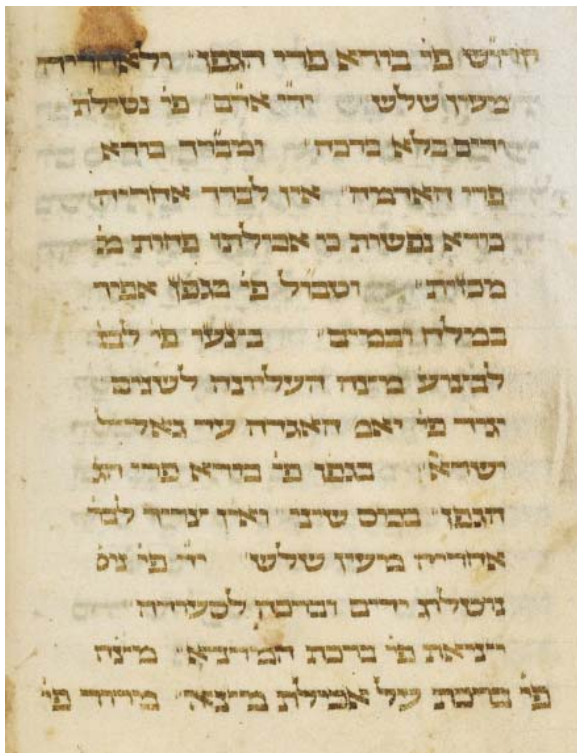 קידוש פי' בורא פרי הגפן ולאחריה
מעין שלש ידי אדם פי' נטילת
ידים בלא ברכה ומברך בורא
פרי האדמה אין לברך אחריה
בורא נפשות כי אכילתו פחות מ'
מכזית וטבול פי' בגפן
במלח ובמים ביצעו פי' לבצ'
לבצוע מצה העליונה לשנים
יגיד פי' יאמ' האגדה עד
ישרא' בגפן פי' בורא פרי הג'
הגפן בכוס שיני ואין צריך לבר'
אחריה מעין שלש ידי פי'
נטילת ידים וברכתן לסעודה
יציאת פי' ברכת המוציא מצה
פי' ברכת על אכילת מצא מרור פי'